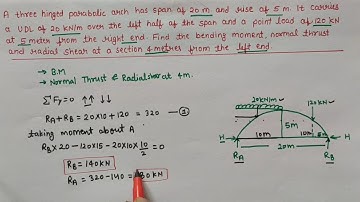 A three hinged parabolic arch has span of 20 m and rise of 5 m. It carries
a UDL of 20 kN/m over the left half of the span and a point load of 120 kN
at 5 meter from the right end. Find the bending moment, normal thrust
and radial shear at a section 4 metres from the left end.
→ B.M
→ Normal Thrust & Radial shear at 4m.
ΣFy=0 ↑↑ ↓↓
RA+RB = 20×10+120 = 320 —①
taking moment about A
RB×20 -120×15 - 20×10×10/2 =0
RB = 140KN
RA = 320-140= 80 KN
20KN/m
120KN
5m
10m
10m
5m
H
H
20m
RA
RB